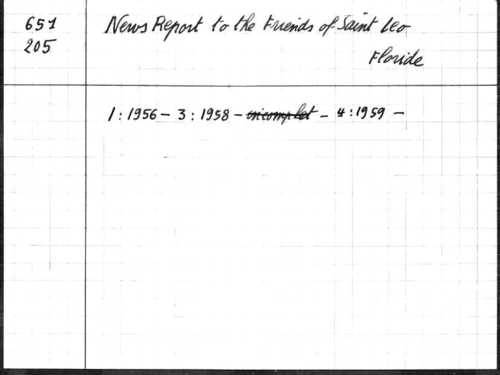 651
205
News Report to the Friends of Saint Leo
Floride
1 : 1956 - 3 : 1958 - incomplet - 4 : 1959 -